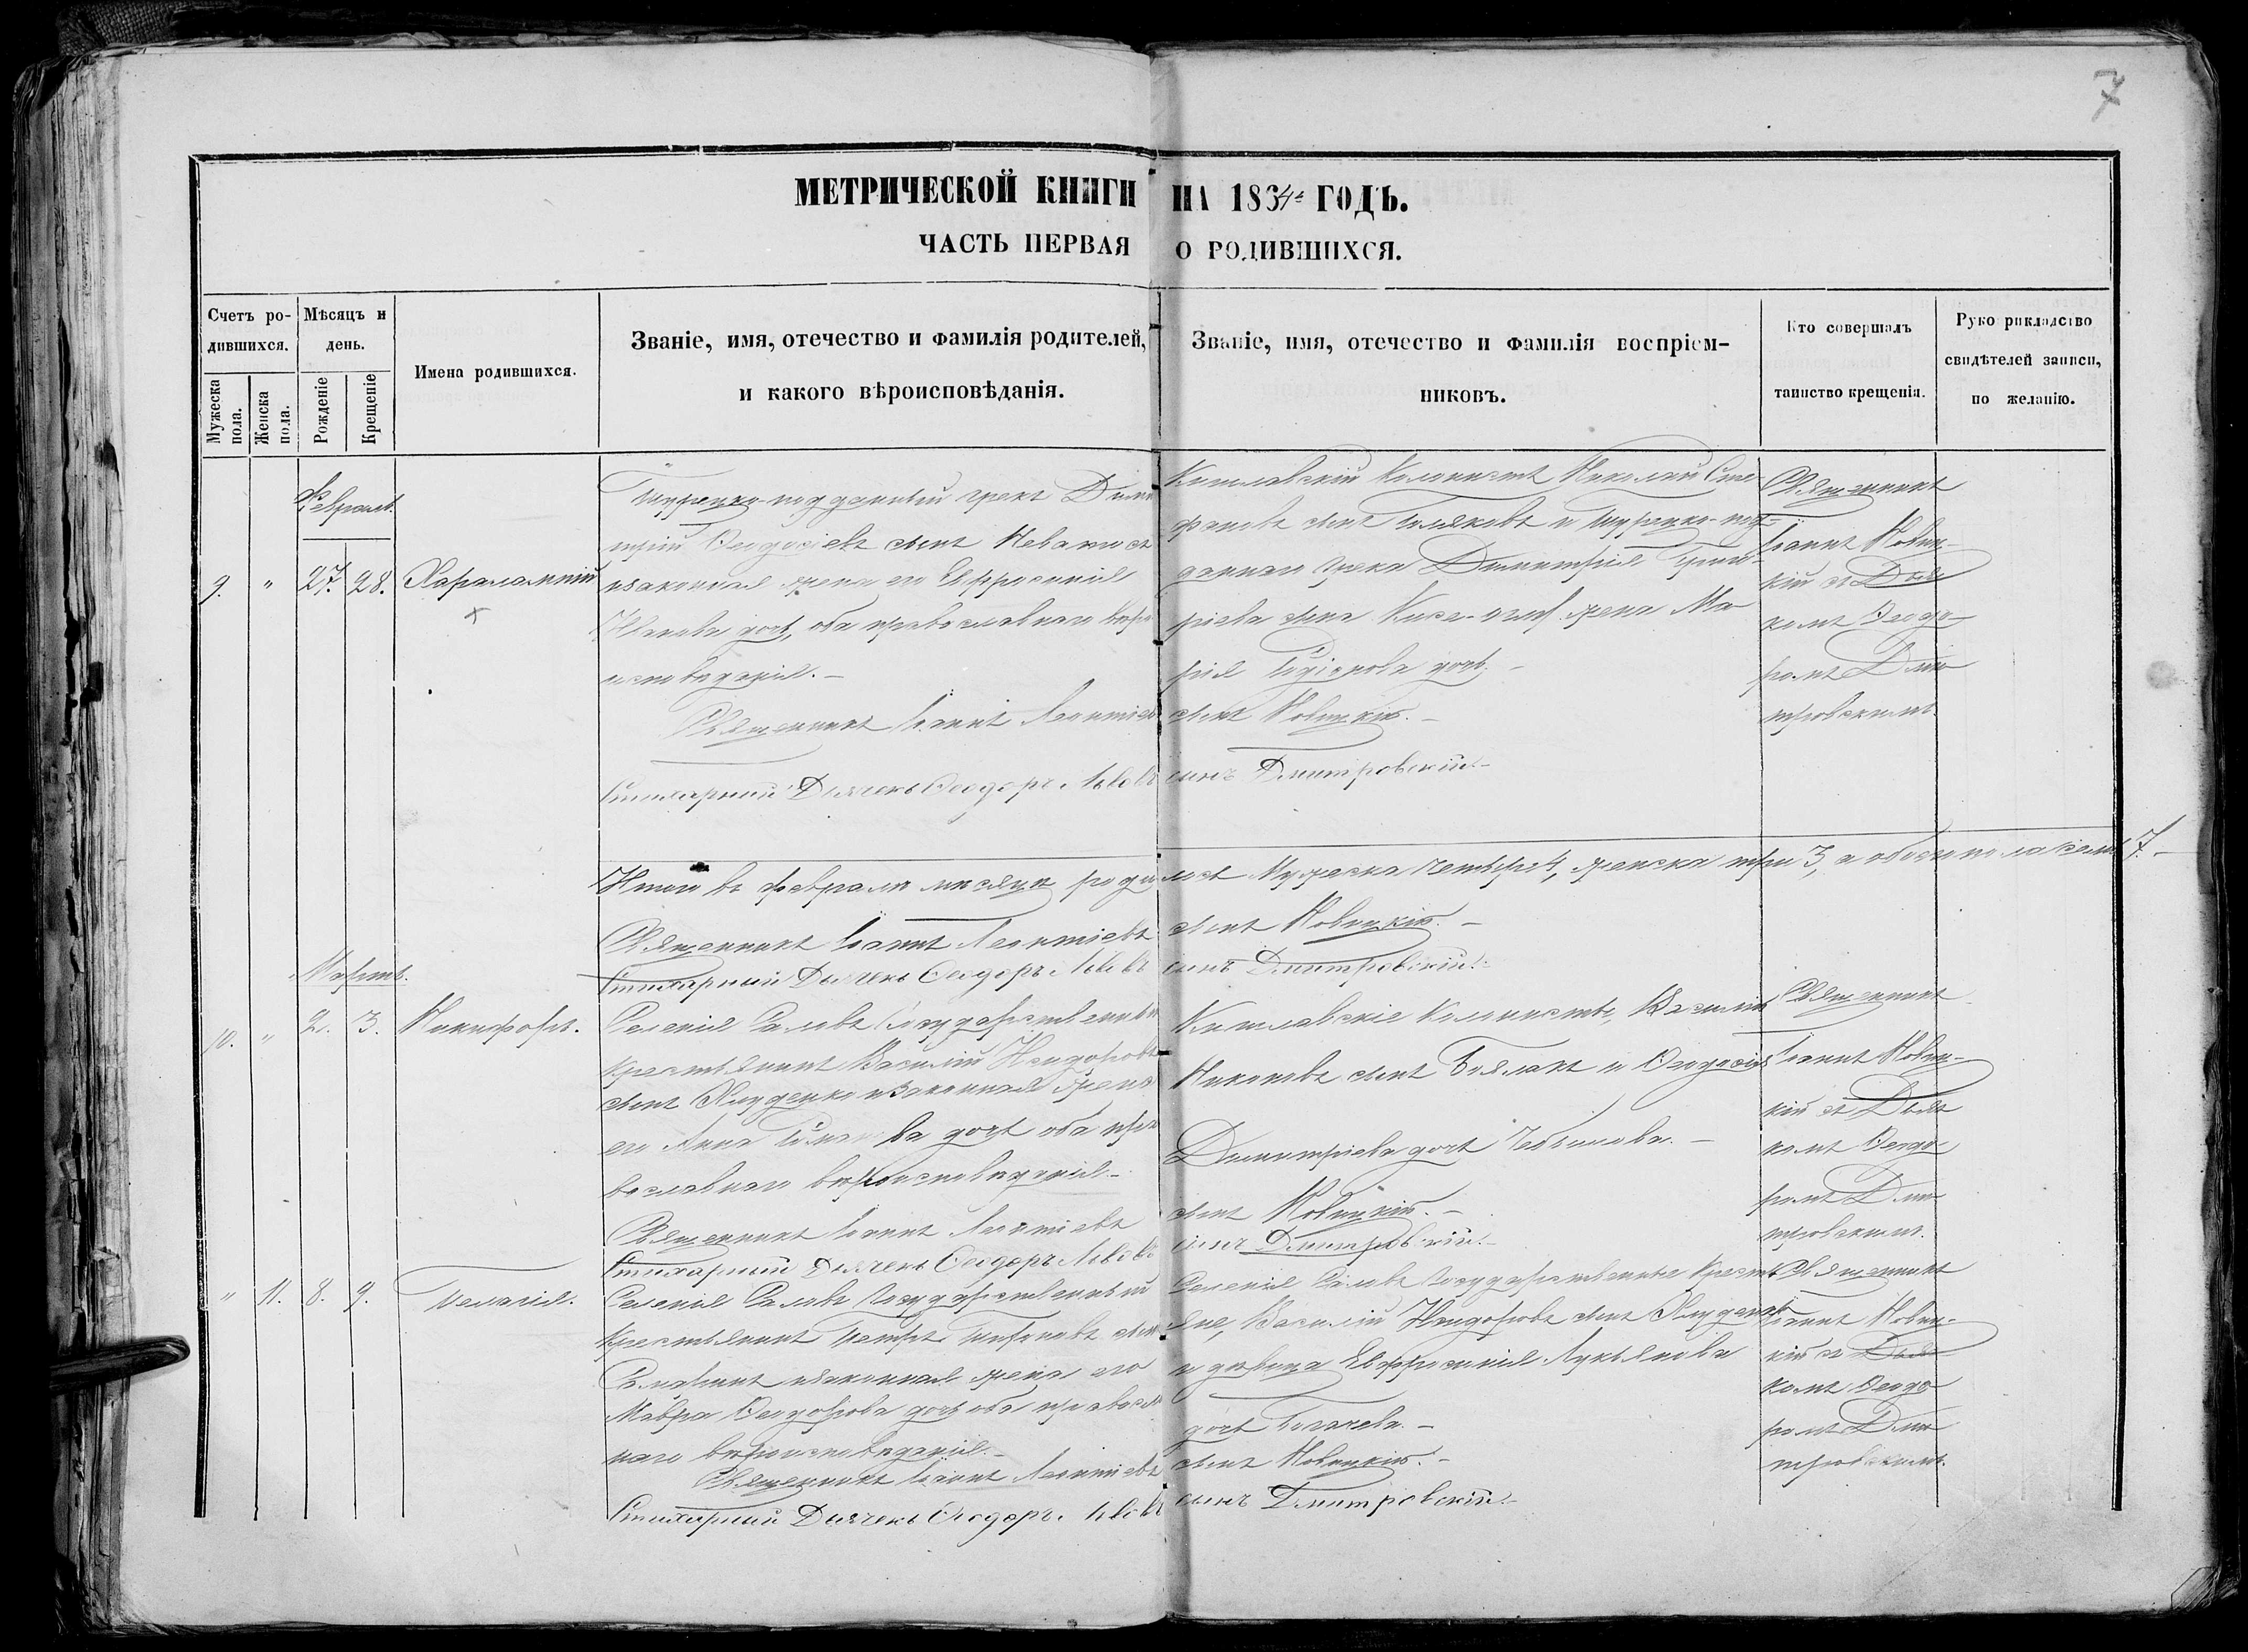 7
МЕТРИЧЕСКОЙ КНИГИ НА 1864й ГОДЪ.
ЧАСТЬ ПЕРВАЯ О РОДИВШИХСЯ.
Счетъ родившихся.
Мужеска пола.
Женска пола.
Мѣсяцъ и день.
Рожденіе
Крещеніе
Имена родившихся.
Званіе, имя, отечество и фамилія родителей,
и какого вѣроисповѣданія.
Званіе, имя, отечество и фамилія воспріем-
никовъ.
Кто совершалъ
таинство крещенія.
Руко рикладство
свидѣтелей записи,
по желанію.
Февраль.
9. " 27. 28. Харалампій
Турецко-подданный грекъ Дими
трій Ѳеодосіевъ сынъ
изаконная жена его Евфросинія
Иванова дочь, оба православнаго вѣро
исповѣданія.
Священникъ Іоаннъ Леонтіевъ
Стихарный Дьячекъ Ѳеодоръ Львовъ
Кишлавскій Колонистъ Николай Сте
фановъ сынъ и Турецко-под-
даннаго Грека Димитрія
сына жена Ма
рія дочь.
сынъ Новицкій.
сынъ Дмитровскій.
Священникъ
Іоаннъ Новиц-
кій съ Дья
комъ Ѳеодо-
ромъ Дми
тровскимъ.
Итого въ Февралѣ мѣсяцѣ роди лось Мужеска четыре 4, женска три 3, а обоего пола семь 7.
Священникъ Іоаннъ Леонтіевъ сынъ Новицкій.
Стихарный Дьячекъ Ѳеодоръ Львовъ сынъ Дмитровскій.
Мартъ.
10. " 2. 3. Никифоръ.
Селенія Салавъ Государственный
Крестьянинъ Василій Исидоровъ
сынъ изаконная жена
его Анна дочь оба пра
вославнаго вѣроисповѣданія.
Священникъ Іоаннъ Леонтіевъ
Стихарный Дьячекъ Ѳеодоръ Львовъ
Кишлавскіе Колонисты, Василій
сынъ и Ѳеодосія
Димитріева дочь
сынъ Новицкій.
сынъ Дмитровскій.
Священникъ
Іоаннъ Новиц-
кій съ Дья
комъ Ѳеодо
ромъ Дми
тровскимъ.
" 11. 8. 9. Пелагія.
Селенія Салавъ Государственный
Крестьянинъ Петръ сынъ
изаконная жена его
Мавра Ѳеодорова дочь оба правосла
внаго вѣроисповѣданія.
Священникъ Іоаннъ Леонтіевъ
Стихарный Дьячекъ Ѳеодоръ Львовъ
Селенія Салавъ Государственные Кресть
яне, Василій Исидоровъ сынъ
и дѣвица Евфросинія Лукьянова
дочь
сынъ Новицкій.
сынъ Дмитровскій.
Священникъ
Іоаннъ Новиц-
кій съ Дья
комъ Ѳеодо
ромъ Дми
тровскимъ.